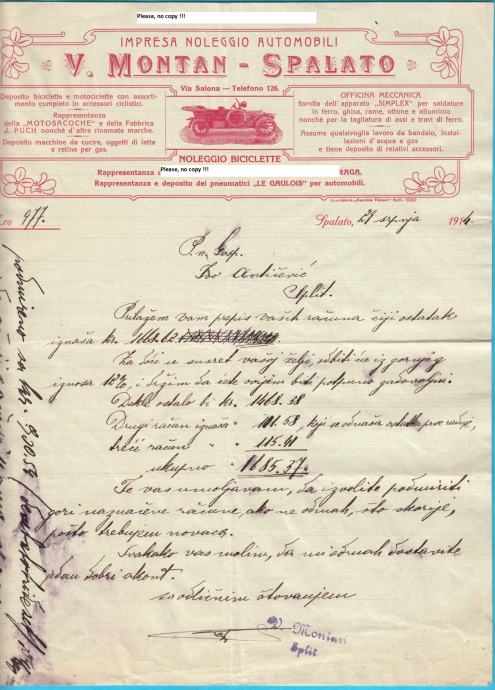 Please, no copy !!!
IMPRESA NOLEGGIO AUTOMOBILI
V. MONTAN - SPALATO
Via Salona — Telefono 126.
Deposito biciclette e motociclette con assorti-
mento completo in accessori ciclistici.
Rappresentanza
della „MOTOSACOCHE" e della Fabbrica
J. PUCH nonchè d'altre rinomate marche.
Deposito macchine da cucire, oggetti di latta
e retine per gas.
OFFICINA MECCANICA
fornita dell'apparato „SIMPLEX" per saldature
in ferro, ghisa, rame, ottone e alluminio
nonchè per la tagliatura di assi e travi di ferro.
Assume qualsivoglia lavoro da bandaio, instal-
lazioni d'acqua e gas
e tiene deposito di relativi accessori.
NOLEGGIO BICICLETTE
Rappresentanza
Please, no copy !!!
RAGA.
Rappresentanza e deposito dei pneumatici „LE GAULOIS" per automobili.
N.ro 977.
Spalato, 29 srpnja 1914.
P. n. Gosp.
Ivo Antičević
Split.
Prilažem vam popis vaših računa čiji ostatak
iznaša kr. 1668.62
Za doći u susret vašoj želji, odbiti će iz gornjeg
iznosa 12%, i držim da ćete ovijem biti potpuno zadovoljni.
Dakle ostalo bi kr. 1468.38
Drugi račun iznaša " 101.58, koji se odnaša
treći račun " " 115.41
ukupno " 1685.37.
Te vas umoljavam, da izvolite podmiriti
gori naznačene račune, ako ne odmah, što skorije,
pošto trebujem novaca.
Svakako vas molim, da mi odmah dostavite
jedan dobri akont.
sa odličnim štovanjem
V. Montan
Split
podmireno sa kr. 930.58